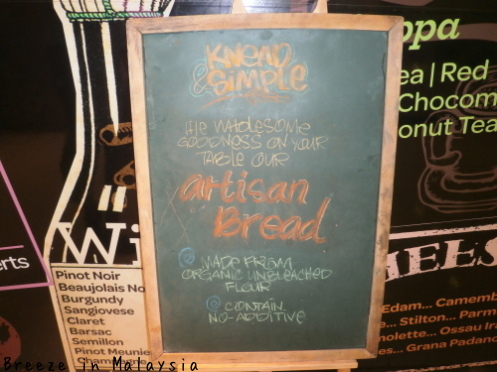 KNEAD
& SIMPLE
THE WHOLESOME
GOODNESS ON YOUR
TABLE OUR
artisan
Bread
@ MADE FROM
ORGANIC UNBLEACHED
FLOUR
@ CONTAIN
NO-ADDITIVE
Wi
Pinot Noir
Beaujolais No
Burgundy
Sangiovese
Claret
Barsac
Semillon
Pinot Meunie
Cham
erts
opa
ea | Red
Chocom
onut Tea
EES
Edam... Camemb
Stilton... Parm
molette... Ossau Ira
es... Grana Padano
Breeze in Malaysia